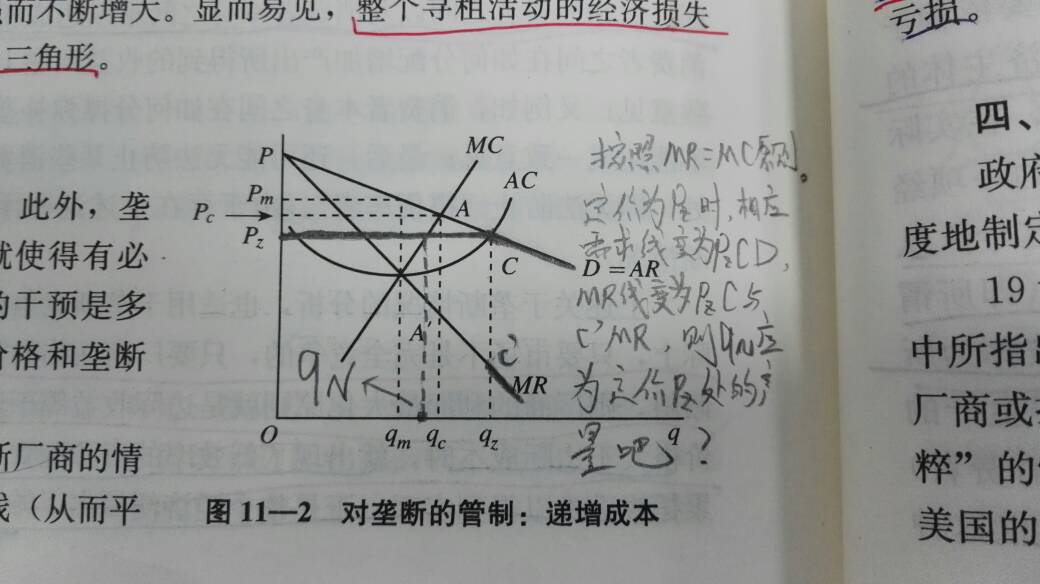 而不断增大。显而易见，整个寻租活动的经济损失
三角形。
亏损。
此外，垄
就使得有必
的干预是多
价格和垄断
所厂商的情
线（从而平
P
Pm
Pc
Pz
MC
AC
A
C
D=AR
A'
C'
MR
qN
O
qm
qc
qz
q
按照MR=MC原则。
定价为Pz时，相应
需求线变为PzCD，
MR线变为PzC与
C'MR，则qN应
为定价Pz处的产
量吧？
图11-2 对垄断的管制：递增成本
四、
政府
度地制定
19
中所指出
厂商或
粹”的
美国的